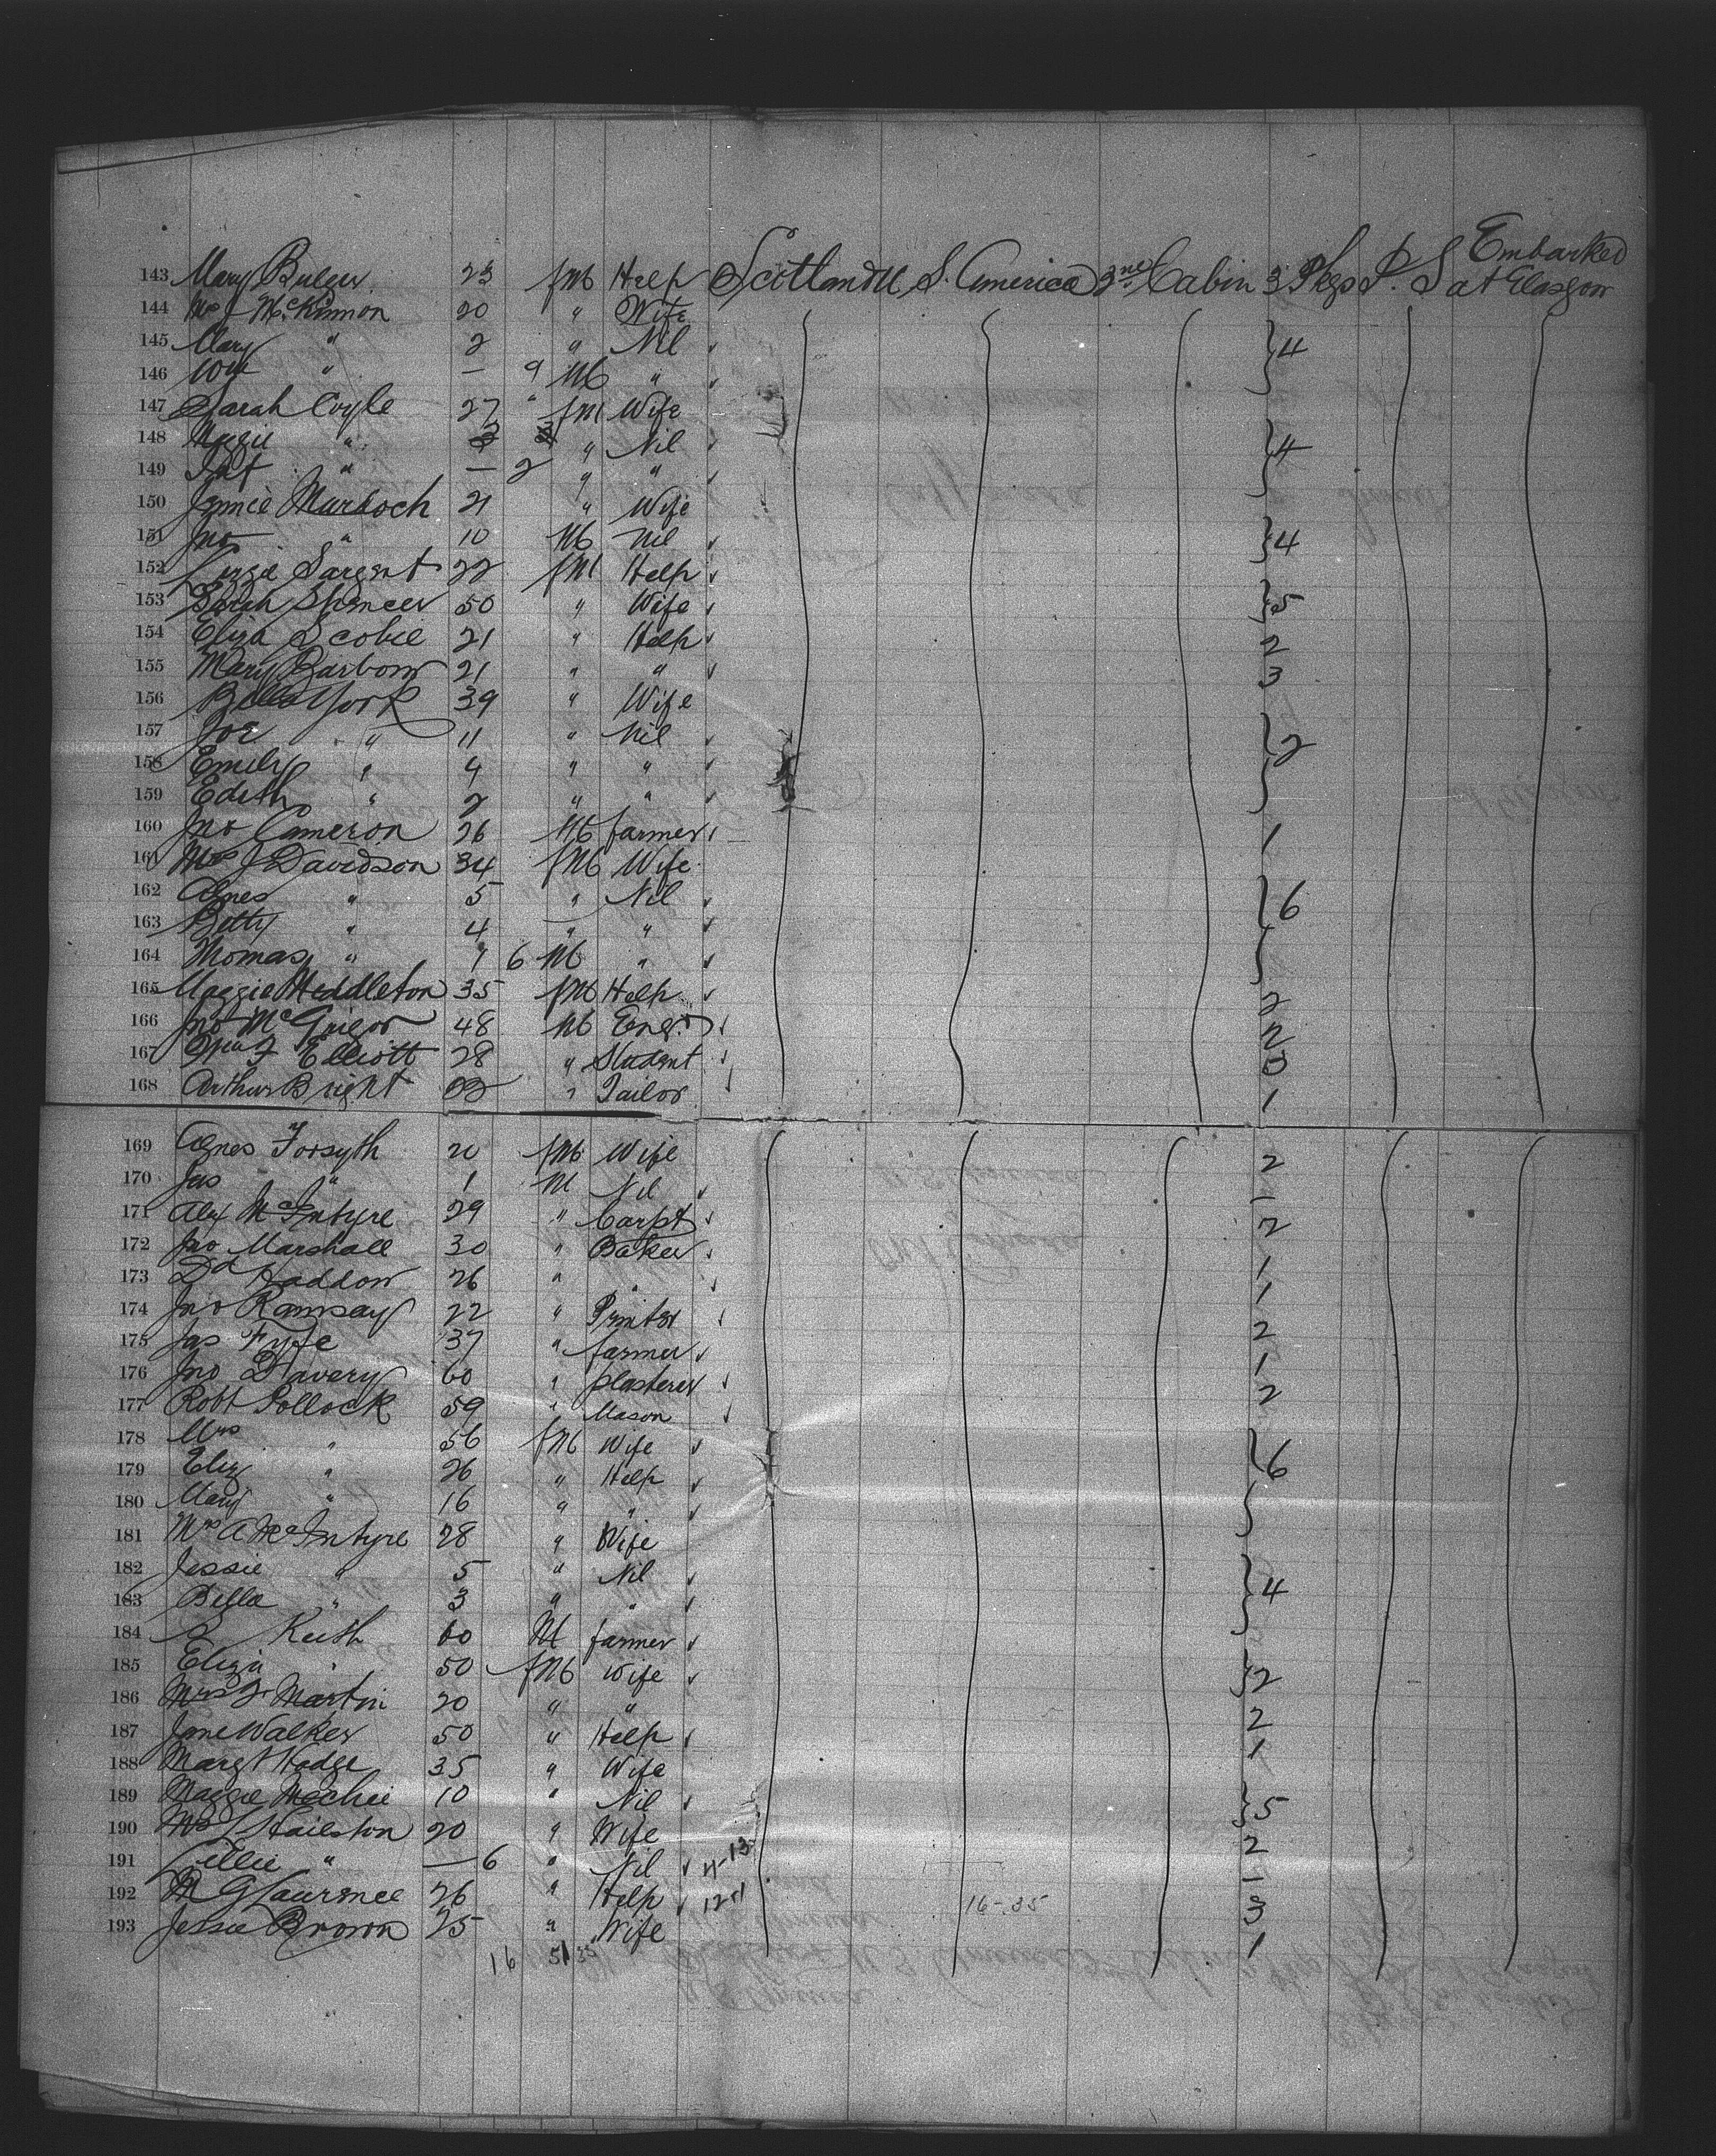 Embarked
143 Mary Bulger 23 fM Help Scotland U. S. America 3rd Cabin 3 Pkgs P. S at Glasgow
144 Mrs J McKinnon 20 " Wife
145 Mary " 2 " Nil 4
146 Wm " — 9 M "
147 Sarah Coyle 27 " fM Wife
148 Maggie " " Nil 4
149 Inft " — 2 " "
150 Jennie Murdoch 21 " Wife
151 Jno " 10 M Nil 4
152 Lizzie Sargent 22 fM Help
153 Sarah Spencer 50 " Wife 5
154 Eliza Scobie 21 " Help 2
155 Mary Barbour 21 " " 3
156 Bella York 39 " Wife
157 Joe " 11 " Nil 2
158 Emily " 4 " "
159 Edith " 2 " "
160 Jno Cameron 26 M farmer 1
161 Mrs J Davidson 34 fM Wife
162 Agnes " 5 " Nil 6
163 Betty " 4 " "
164 Thomas " 1 6 M "
165 Maggie Meddleton 35 fM Help 2
166 Jno McGrigor 48 M Engr 2
167 F Elliott 28 " Student
168 Arthur Bright " Tailor 1
169 Agnes Forsyth 20 fM Wife 2
170 Jas " 1 M Nil —
171 Alex McIntyre 29 " Carpt 2
172 Jno Marshall 30 " Baker 1
173 Dd Haddow 26 " " 1
174 Jno Ramsay 22 " Printer 2
175 Jas Fyfe 37 " farmer 1
176 Jno Davery 60 " plasterer 2
177 Robt Pollock 59 " Mason
178 Mrs " 56 fM Wife 6
179 Eliz " 26 " Help
180 Mary " 16 " "
181 Mrs A McIntyre 28 " Wife
182 Jessie " 5 " Nil 4
183 Bella " 3 " "
184 Keith 60 M farmer
185 Eliza " 50 fM Wife 2
186 Mrs Martin 20 " " 2
187 Jane Walker 50 " Help 1
188 Margt Hodge 35 " Wife
189 Maggie Mechie 10 " Nil 5
190 Mrs Hailston 20 " Wife 2
191 Lillie " — 6 " Nil 11-13 —
192 M G Laurence 26 " Help 12-1 16-35 3
193 Jessie Brown 25 " Wife 1
16 51 35